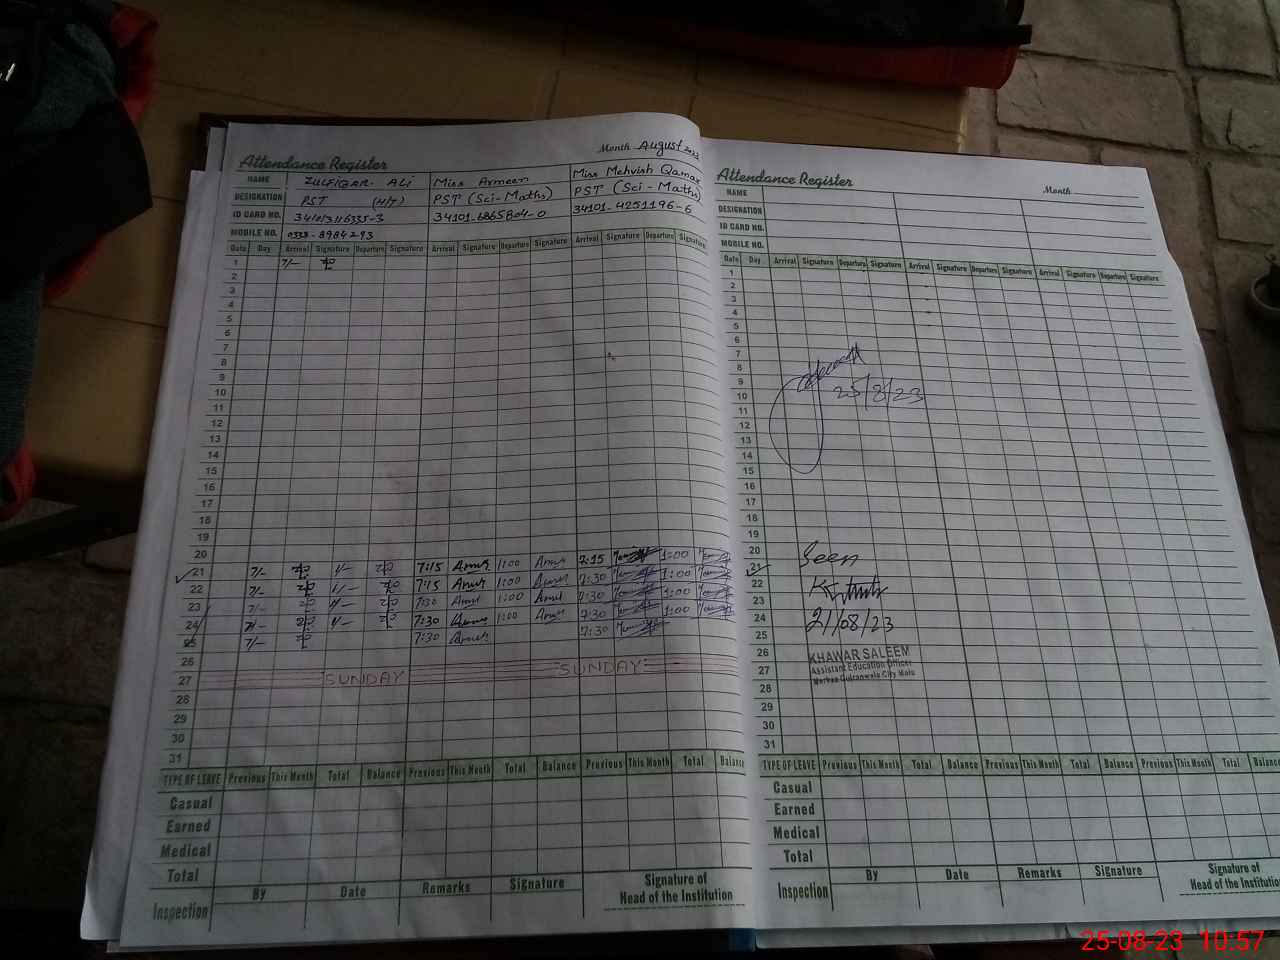 Month August 2023
Attendance Register
NAME ZULFIQAR ALI Miss Armeen Miss Mehvish Qamar
DESIGNATION PST (H/T) PST (Sci-Maths) PST (Sci-Maths)
ID CARD NO. 34101-6865804-0 34101-4251196-6
MOBILE NO. 0333-8984293
Date Day Arrival Signature Departure Signature Arrival Signature Departure Signature Arrival Signature Departure Signature
1 7/-
2
3
4
5
6
7
8
9
10
11
12
13
14
15
16
17
18
19
20
21 7/- 1/- 7:15 1:00 7:15 1:00
22 7/- 1/- 7:15 1:00 7:30 1:00
23 7/- 1/- 7:30 1:00 7:30 1:00
24 7/- 1/- 7:30 1:00 7:30 1:00
25 7/- 7:30 7:30
26
27 SUNDAY SUNDAY
28
29
30
31
TYPE OF LEAVE Previous This Month Total Balance Previous This Month Total Balance Previous This Month Total Balance
Casual
Earned
Medical
Total
Inspection By Date Remarks Signature Signature of
Head of the Institution
Attendance Register Month
NAME
DESIGNATION
ID CARD NO.
MOBILE NO.
Date Day Arrival Signature Departure Signature Arrival Signature Departure Signature Arrival Signature Departure Signature
1
2
3
4
5
6
7
8
9
10 25/8/23
11
12
13
14
15
16
17
18
19
20 Seen
21
22
23
24 21/08/23
25
26 KHAWAR SALEEM
27 Assistant Education Officer
Markaz Gujranwala City Male
28
29
30
31
TYPE OF LEAVE Previous This Month Total Balance Previous This Month Total Balance Previous This Month Total Balance
Casual
Earned
Medical
Total
Inspection By Date Remarks Signature Signature of
Head of the Institution
25-08-23 10:57